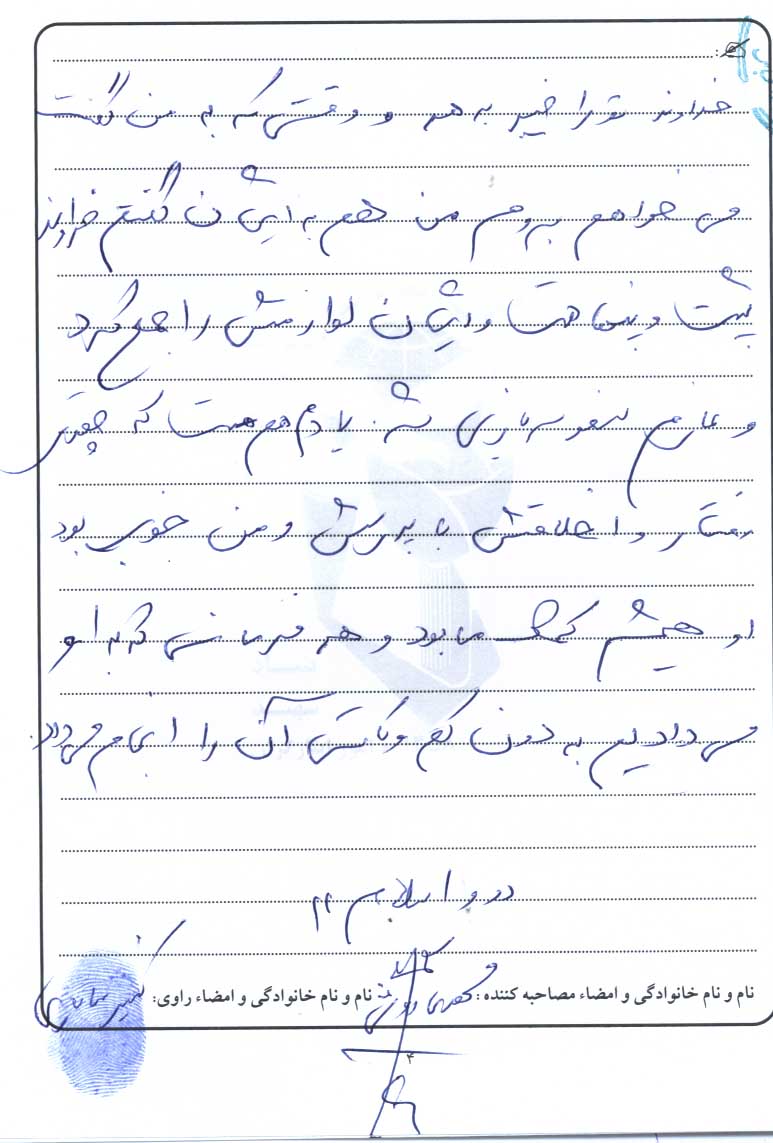 خداوند تو را خیر بدهد و وقتی که به من گفت
می خواهم بروم من هم به ایشان گفتم خداوند
پشت و پناهت و ایشان لوازمش را جمع کرد
و عازم شد. یادم هم هست که چقدر
رفتار و اخلاقش با پدرش و من خوب بود
او همیشه کمک ما بود و هر فرمانی که به او
می دادیم به دون کم و کاستی آن را انجام می داد.
نام و نام خانوادگی و امضاء مصاحبه کننده :
نام و نام خانوادگی و امضاء راوی:
۴